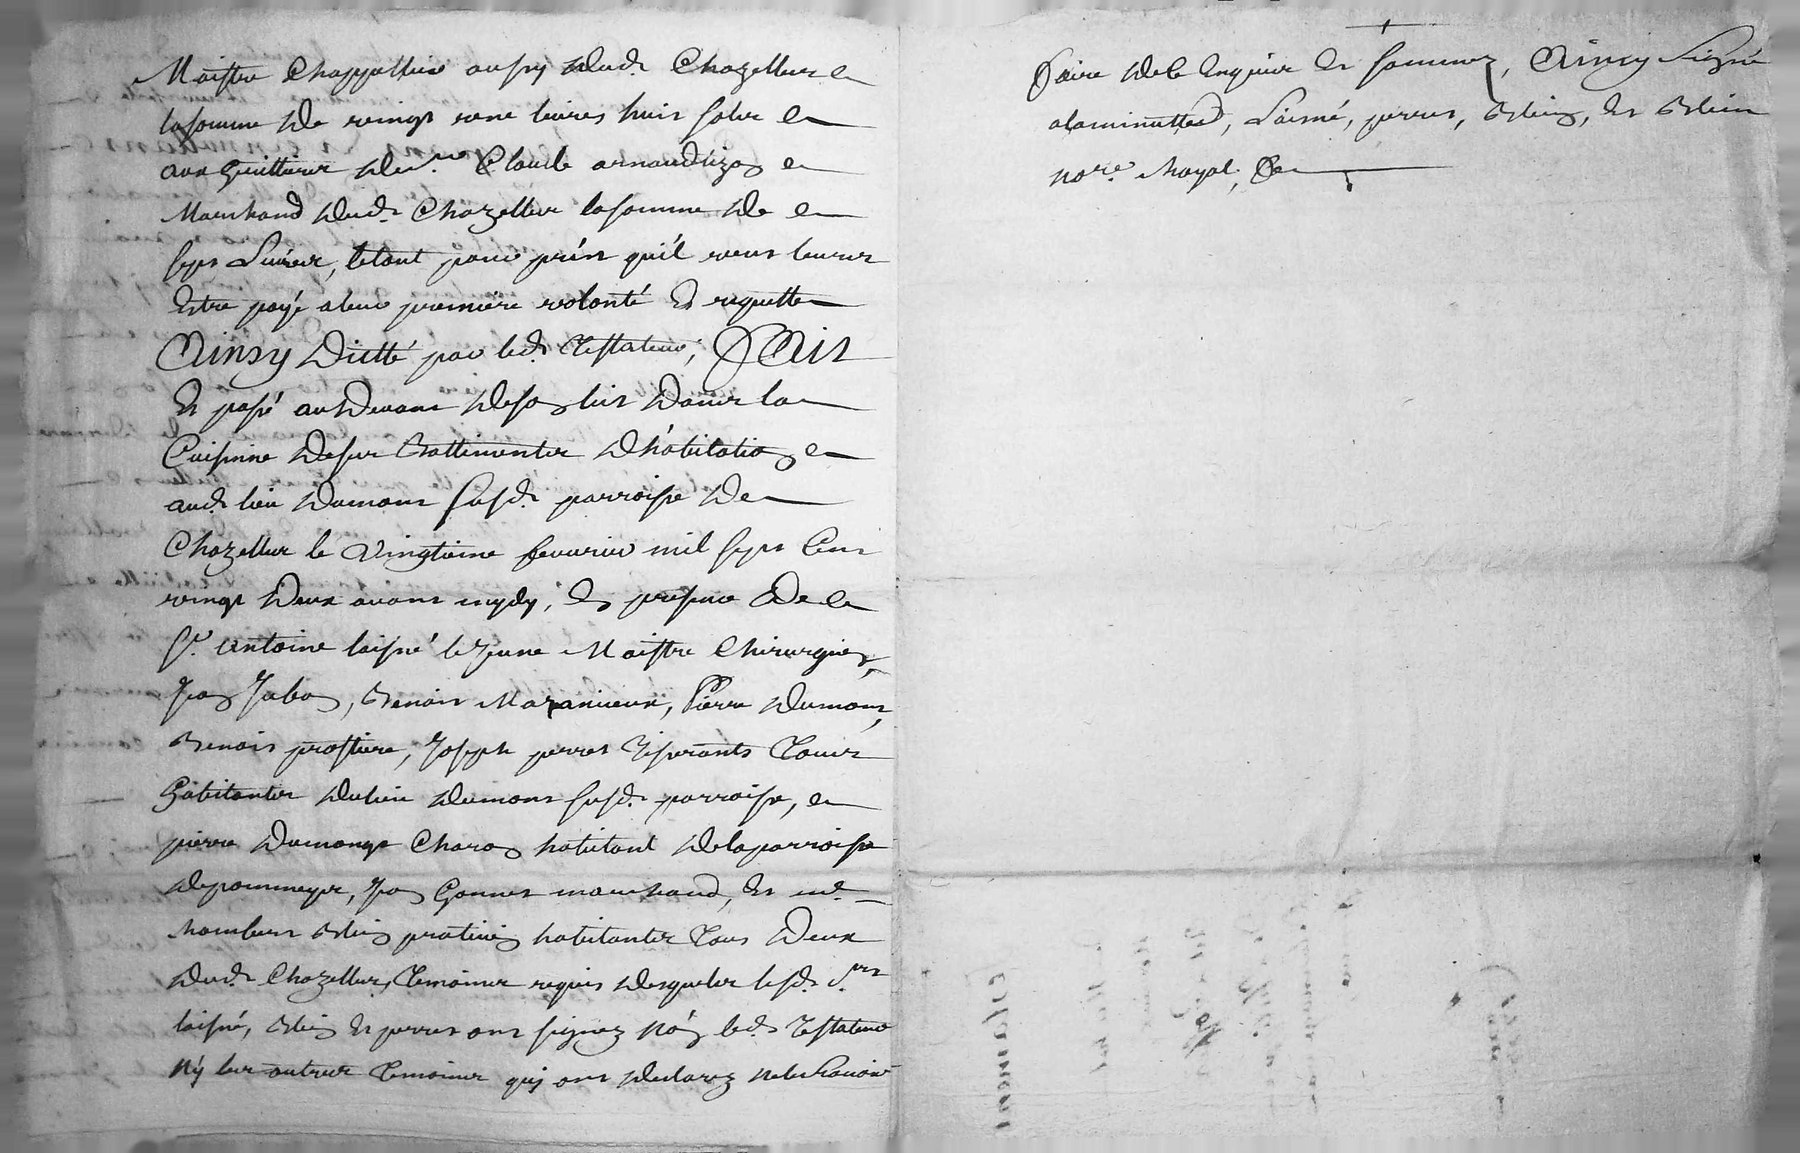 Maistre Chappellier aussy dud. Chazelles
la somme de vingt une livres huit sols
aux heritiers de s.r Claude arnaudizon
Marchand dud. Chazelles la somme de
sept Livres, letout pour prest qu'il veut leurs
Estre payé a leur premiere volonté Et requette
Ainsy Dicté par led. Testateur, Fait
Et passé au devant de son lict dans la
Cuisinne de ses Battimentes D'habitation
aud. lieu Dumont susd. parroisse De
Chazelles le vingtieme fevurier mil sept Cent
vingt deux avant mydy, En presence De
s.r antoine laisné le Jeune Maistre Chirurgien,
Jean Jabo, Benoit Mazanieux, Pierre Dumont,
Benoit prostiere, Joseph perret Tisserants Tous
habitantes dulieu Dumont susd. parroisse,
pierre Charon habitant delaparroisse
depommeys, Jean Gonnet marchand, Et
pratiein habitantes Tous Deux
dud. Chazelles, Temoins requis desqueles lesd. s.rs
laisné, Et perret ont signez non led. Testateur
Ny les autres Temoins qui ont declarez ne le scavoir
faire de ce Enquis Et sommez, Ainsy Signé
alaminutte, Laisné, perret, Et
no.re Royal,